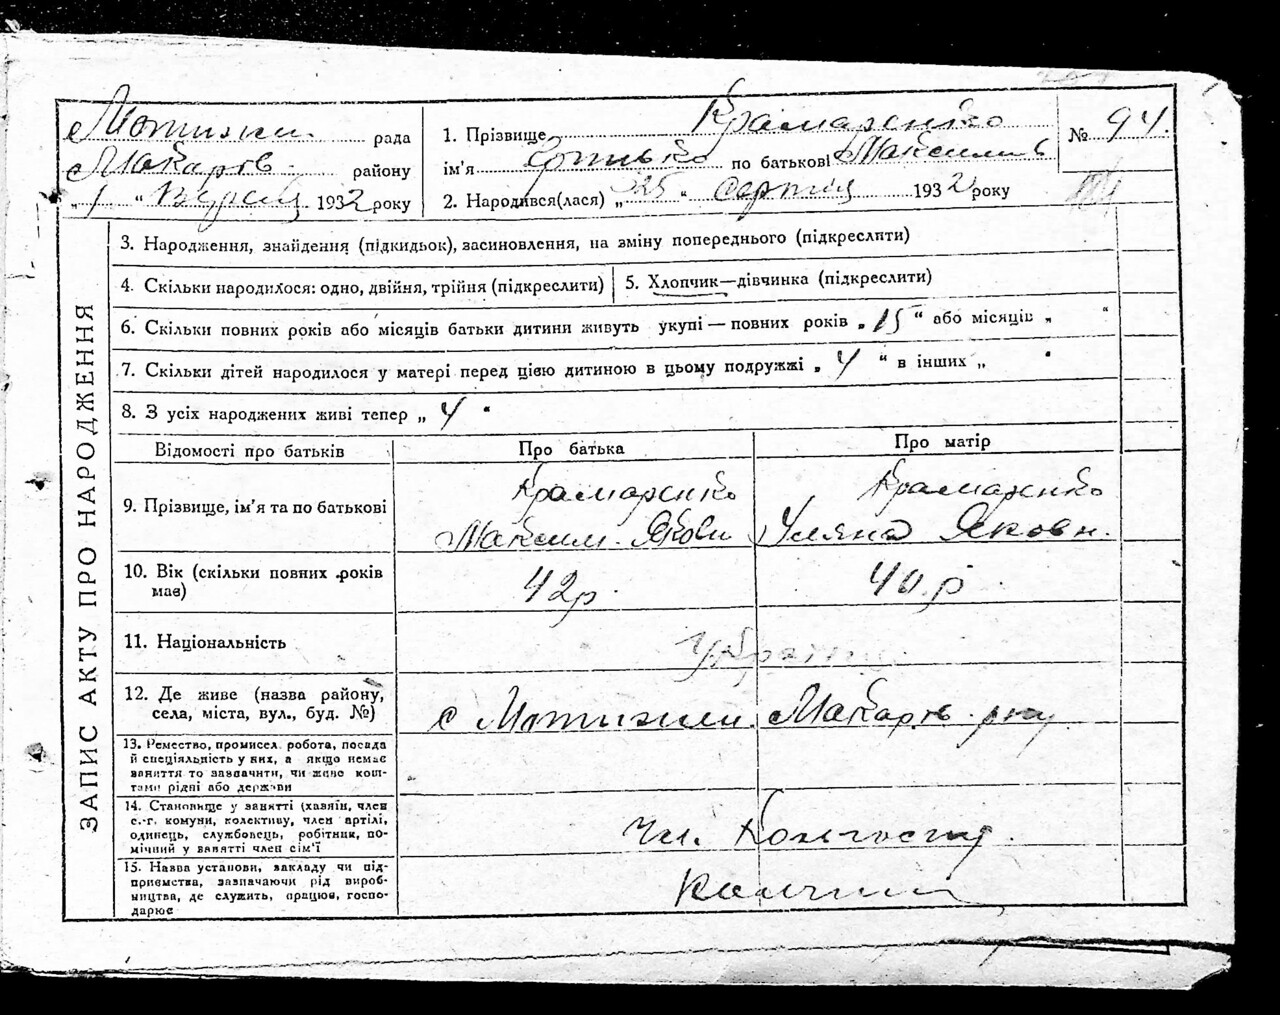 Мотижин рада
Макарів району
„ 1 “ Вересн 1932 року
1. Прізвище Крамаренко
ім'я Грицько по батькові Максимів
2. Народився(лася) „ 25 “ серпня 1932 року
№ 94.
ЗАПИС АКТУ ПРО НАРОДЖЕННЯ
3. Народження, знайдення (підкидьок), засиновлення, на зміну попереднього (підкреслити)
4. Скільки народилося: одно, двійня, трійня (підкреслити)
5. Хлопчик—дівчинка (підкреслити)
6. Скільки повних років або місяців батьки дитини живуть укупі — повних років „ 15 “ або місяців „ “
7. Скільки дітей народилося у матері перед цією дитиною в цьому подружжі „ 4 “ в інших „ “
8. З усіх народжених живі тепер „ 4 “
Відомості про батьків
Про батька
Про матір
9. Прізвище, ім'я та по батькові
Крамаренко
Максим Якови
Крамаренко
Уляна Яковн.
10. Вік (скільки повних років
має)
42 р.
40 р
11. Національність
Україн.
12. Де живе (назва району,
села, міста, вул., буд. №)
с Мотижин. Макарів. рну
13. Ремество, промисел, робота, посада
й спеціяльність у них, а якщо немає
заняття то зазначити, чи живе кош-
тами рідні або держави
14. Становище у занятті (хазяїн, член
с.-г. комуни, колективу, член артілі,
одинець, службовець, робітник, по-
мічний у занятті член сім'ї
Чл. Колгоспу.
15. Назва установи, закладу чи під-
приємства, зазначаючи рід вироб-
ництва, де служить, працює, госпо-
дарює